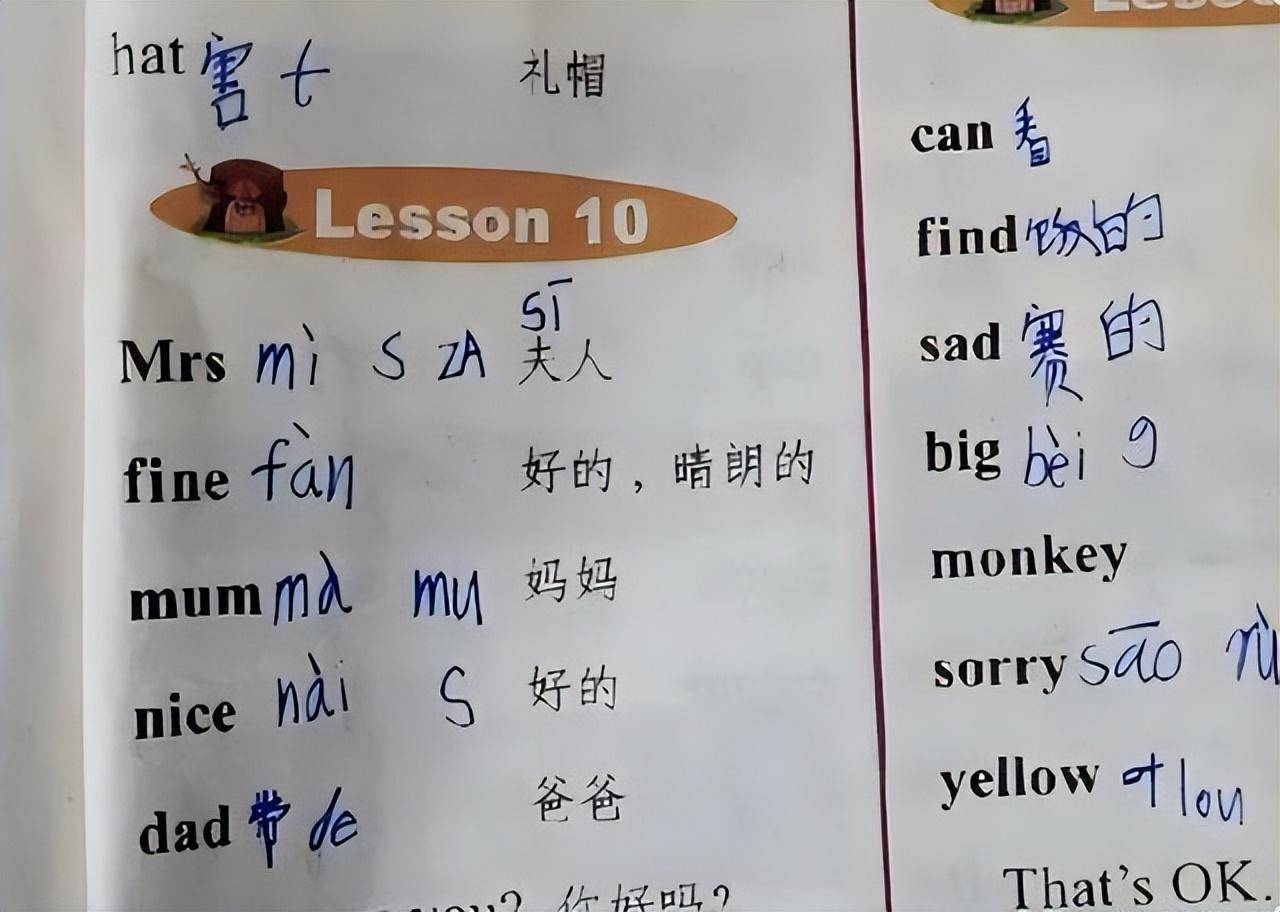 hat 害 t 礼帽
Lesson 10
Mrs mì s ZA sī 夫人
fine fàn 好的，晴朗的
mum mà mu 妈妈
nice nài s 好的
dad 带 de 爸爸
你好吗？
can 看
find 的
sad 赛 的
big bèi g
monkey
sorry sāo rù
yellow 叶 lou
That's OK.